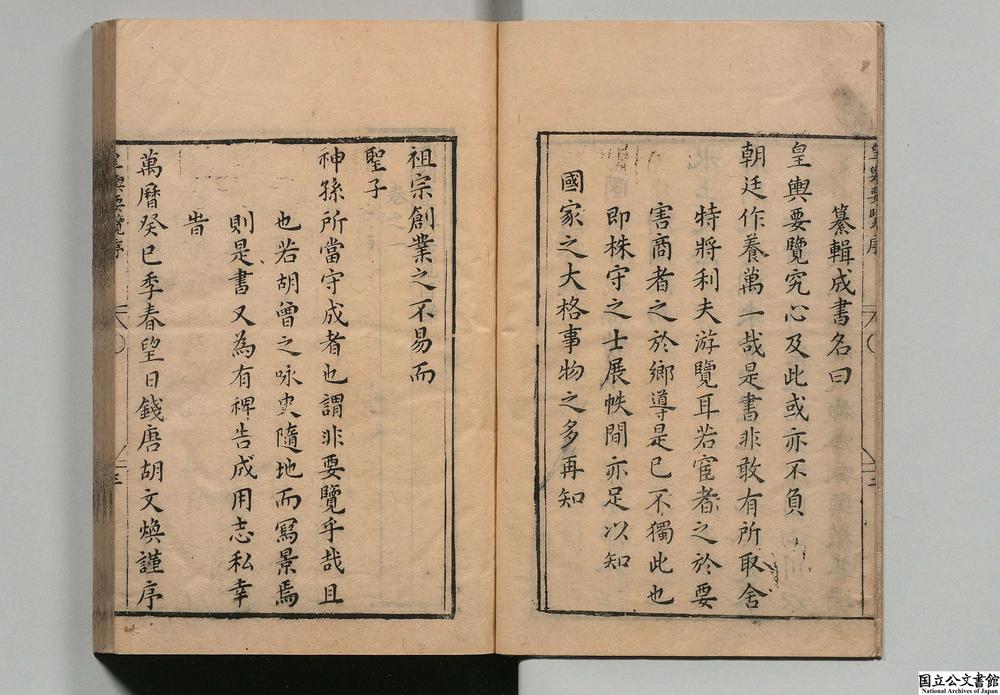 纂輯成書名曰
皇輿要覽究心及此或亦不負
朝廷作養萬一哉是書非敢有所取舍
特將利夫游覽耳若宦者之於要
害商者之於鄉導是已不獨此也
即株守之士展帙間亦足以知
國家之大格事物之多再知
祖宗創業之不易而
聖子
神孫所當守成者也謂非要覽乎哉且
也若胡曾之咏史隨地而寫景焉
則是書又為有稗告成用志私幸
旹
萬曆癸巳季春望日錢唐胡文煥謹序
皇輿要覽序
三
国立公文書館
National Archives of Japan